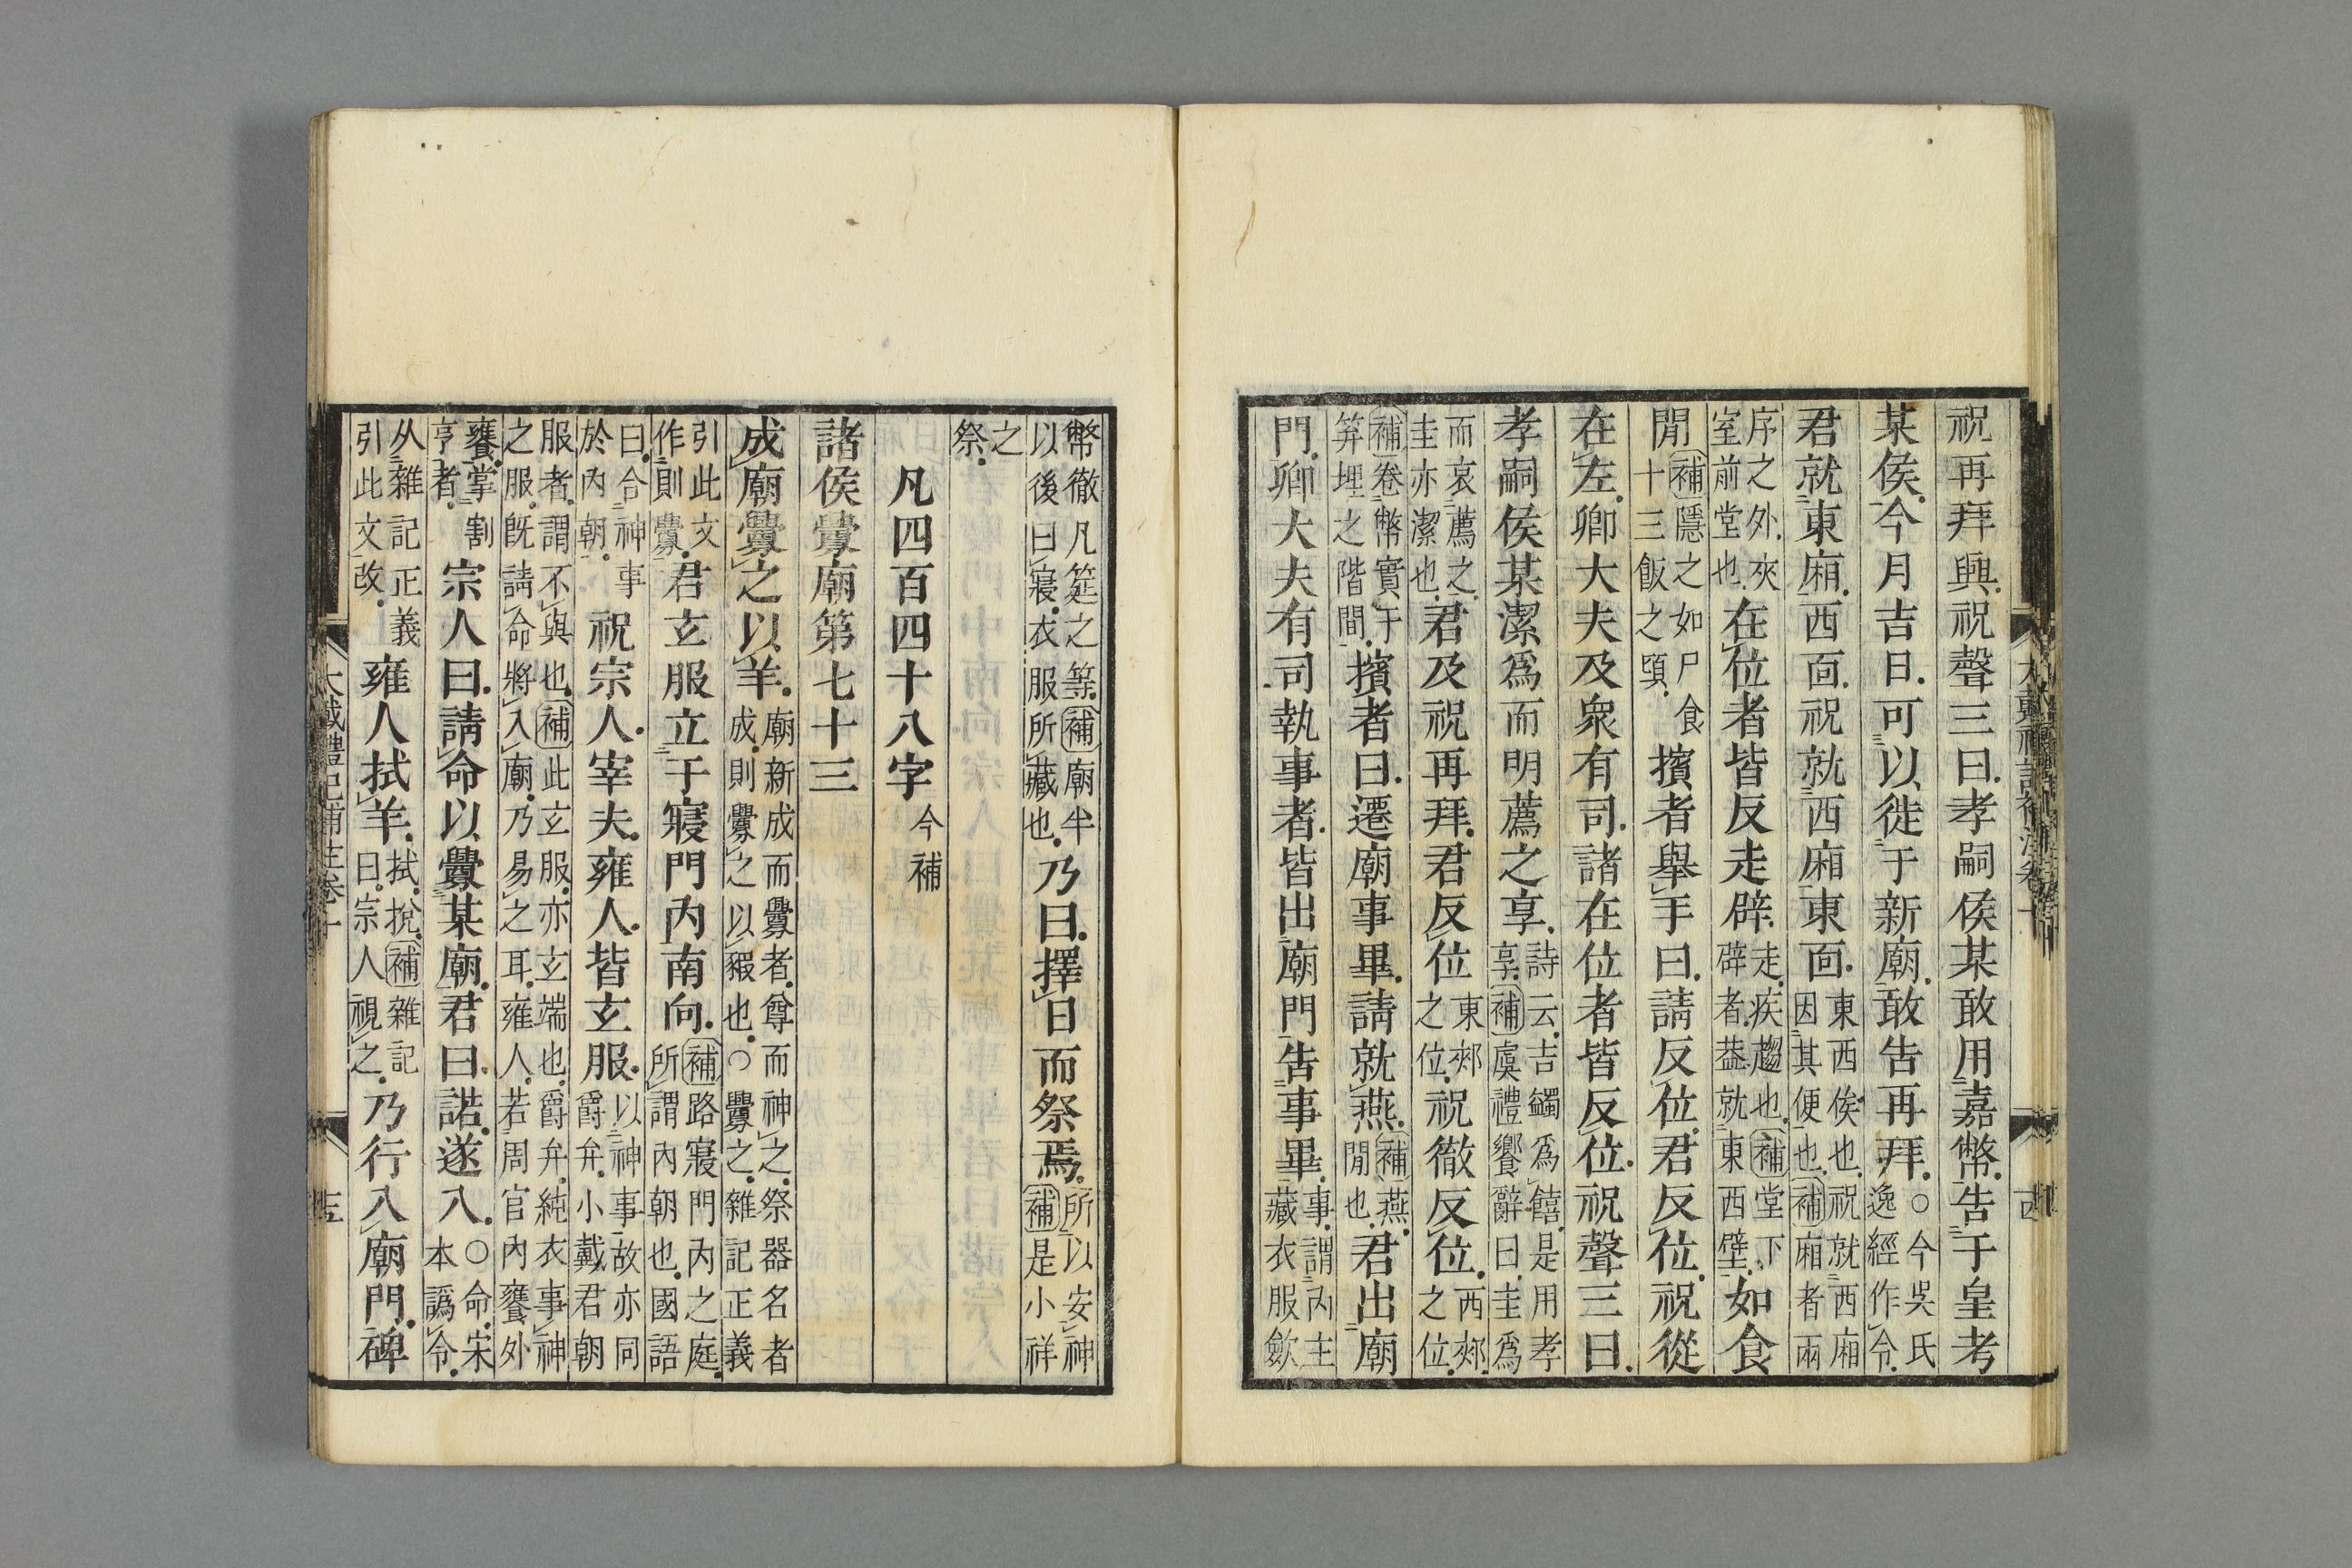 祝再拜興祝聲三曰孝嗣侯某敢用嘉幣告于皇考
某侯今月吉日可以徙于新廟敢告再拜○今吳氏逸經作令
君就東廂西面祝就西廂東面東西俟也祝就西廂因其便也補廂者兩
序之外夾室前堂也在位者皆反走辟走疾趨也補堂下辟者葢就東西壁如食
閒補隱之如尸食十三飯之頃擯者舉手曰請反位君反位祝從
在左卿大夫及衆有司諸在位者皆反位祝聲三曰
孝嗣侯某潔爲而明薦之享詩云吉蠲爲饎是用孝享補虞禮饗辭曰圭爲
而哀薦之圭亦潔也君及祝再拜君反位東郟之位祝徹反位西郟之位
補卷幣實于笲埋之階間擯者曰遷廟事畢請就燕補燕閒也君出廟
門卿大夫有司執事者皆出廟門告事畢事謂內主藏衣服斂
幣徹凡筵之等補廟半以後曰寢衣服所藏也乃曰擇日而祭焉所以安神補是小祥
之祭
凡四百四十八字今補
諸侯釁廟第七十三
成廟釁之以羊廟新成而釁者尊而神之祭器名者成則釁之以豭也○釁之雜記正義
引此文作則釁君玄服立于寢門內南向補路寢門內之庭所謂內朝也國語
曰合神事於內朝祝宗人宰夫雍人皆玄服以神事故亦同爵弁小戴君朝
服者謂不與也補此玄服亦玄端也爵弁純衣事神之服旣請命將入廟乃易之耳雍人若周官內饔外
饔掌割亨者宗人曰請命以釁某廟君曰諾遂入○命宋本譌令
从雜記正義引此文改雍人拭羊拭捝補雜記曰宗人視之乃行入廟門碑
大戴禮記補注卷十